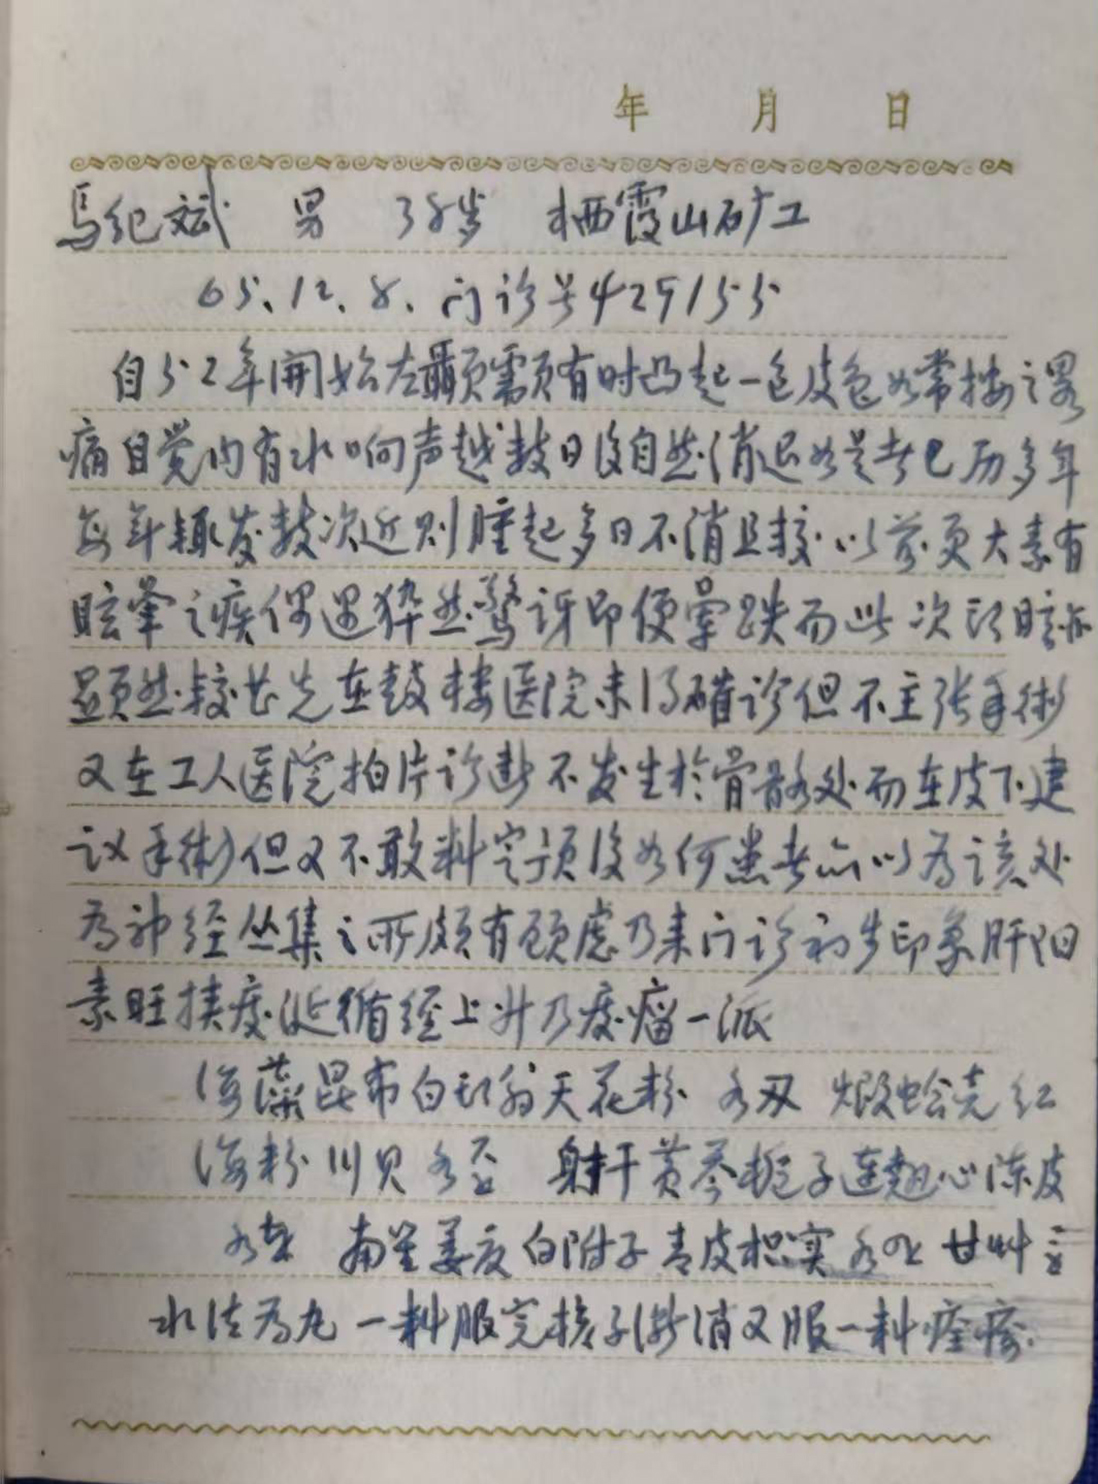 年 月 日
馬纪斌 男 38岁 栖霞山矿工
65.12.8. 门诊号429155
自52年開始左顳需页有时凸起一包皮色如常按之略
痛自觉内有水响声越数日後自然消退如是者已历多年
每年辄发数次近则腫起多日不消且較以前更大素有
眩晕之疾偶遇猝然驚讶即便晕跌而此次頭眩亦
显然較甚先在鼓楼医院未得確诊但不主张手術
又在工人医院拍片诊断不发生於骨骼处而在皮下建
议手術但又不敢料定预後如何患者亦以为该处
为神经丛集之所颇有顾虑乃来门诊初步印象肝阳
素旺挟痰涎循经上升乃痰瘤一派
海藻昆布白头翁天花粉 各双 煅蛤壳红
海粉川贝各 射干黄芩栀子连翘心陈皮
各 南星姜夏白附子青皮枳实各 甘艸
水法为丸 一料服完核子渐消又服一料痊癒